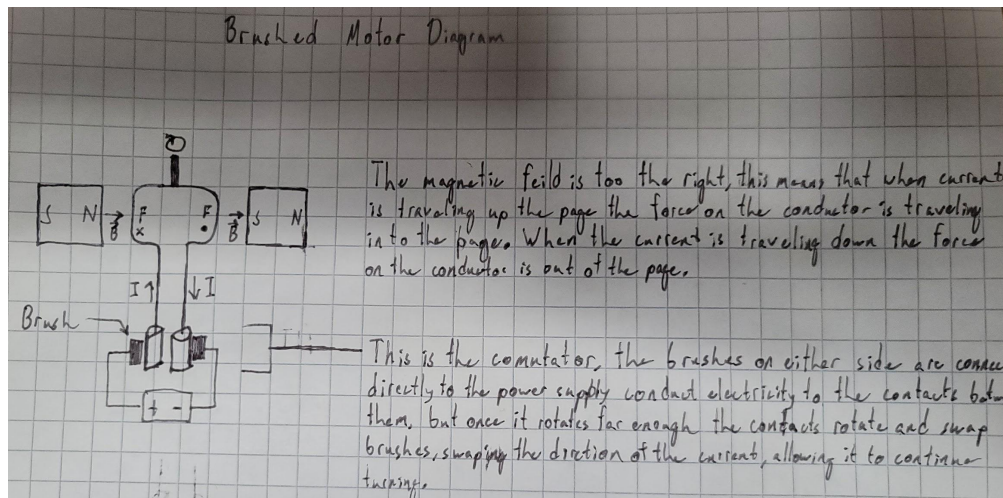 Brushed Motor Diagram
S N B F x F . B S N
I ↑ ↓ I
Brush
+ -
The magnetic feild is too the right, this means that when current
is traveling up the page the force on the conductor is traveling
in to the page. When the current is traveling down the force
on the conductor is out of the page.
This is the comutator, the brushes on either side are connec
directly to the power supply conduct electricity to the contacts betw
them, but once it rotates far enough the contacts rotate and swap
brushes, swaping the dirction of the current, allowing it to continue
turning.